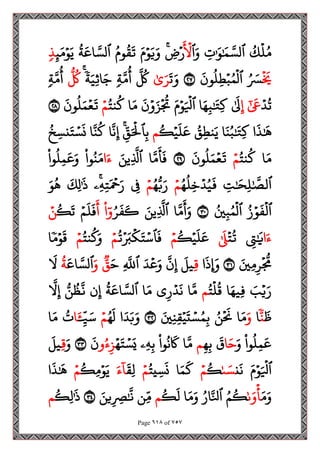 مُلْكُ ٱلسَّمَٰوَٰتِ وَٱلْأَرْضِ ۚ وَيَوْمَ تَقُومُ ٱلسَّاعَةُ يَوْمَئِذٍ
يَخْسَرُ ٱلْمُبْطِلُونَ ٢٧ وَتَرَىٰ كُلَّ أُمَّةٍ جَاثِيَةً ۚ كُلُّ أُمَّةٍ
تُدْعَىٰٓ إِلَىٰ كِتَٰبِهَا ٱلْيَوْمَ تُجْزَوْنَ مَا كُنتُمْ تَعْمَلُونَ ٢٨
هَٰذَا كِتَٰبُنَا يَنطِقُ عَلَيْكُم بِٱلْحَقِّ ۚ إِنَّا كُنَّا نَسْتَنسِخُ
مَا كُنتُمْ تَعْمَلُونَ ٢٩ فَأَمَّا ٱلَّذِينَ ءَامَنُوا۟ وَعَمِلُوا۟
ٱلصَّٰلِحَٰتِ فَيُدْخِلُهُمْ رَبُّهُمْ فِى رَحْمَتِهِۦ ۚ ذَٰلِكَ هُوَ
ٱلْفَوْزُ ٱلْمُبِينُ ٣٠ وَأَمَّا ٱلَّذِينَ كَفَرُوٓا۟ أَفَلَمْ تَكُنْ
ءَايَٰتِى تُتْلَىٰ عَلَيْكُمْ فَٱسْتَكْبَرْتُمْ وَكُنتُمْ قَوْمًا
مُّجْرِمِينَ ٣١ وَإِذَا قِيلَ إِنَّ وَعْدَ ٱللَّهِ حَقٌّ وَٱلسَّاعَةُ لَا
رَيْبَ فِيهَا قُلْتُم مَّا نَدْرِى مَا ٱلسَّاعَةُ إِن نَّظُنُّ إِلَّا
ظَنًّا وَمَا نَحْنُ بِمُسْتَيْقِنِينَ ٣٢ وَبَدَا لَهُمْ سَيِّـَٔاتُ مَا
عَمِلُوا۟ وَحَاقَ بِهِم مَّا كَانُوا۟ بِهِۦ يَسْتَهْزِءُونَ ٣٣ وَقِيلَ
ٱلْيَوْمَ نَنسَىٰكُمْ كَمَا نَسِيتُمْ لِقَآءَ يَوْمِكُمْ هَٰذَا
وَمَأْوَىٰكُمُ ٱلنَّارُ وَمَا لَكُم مِّن نَّٰصِرِينَ ٣٤ ذَٰلِكُم
Page ٦١٨ of ٧٥٧